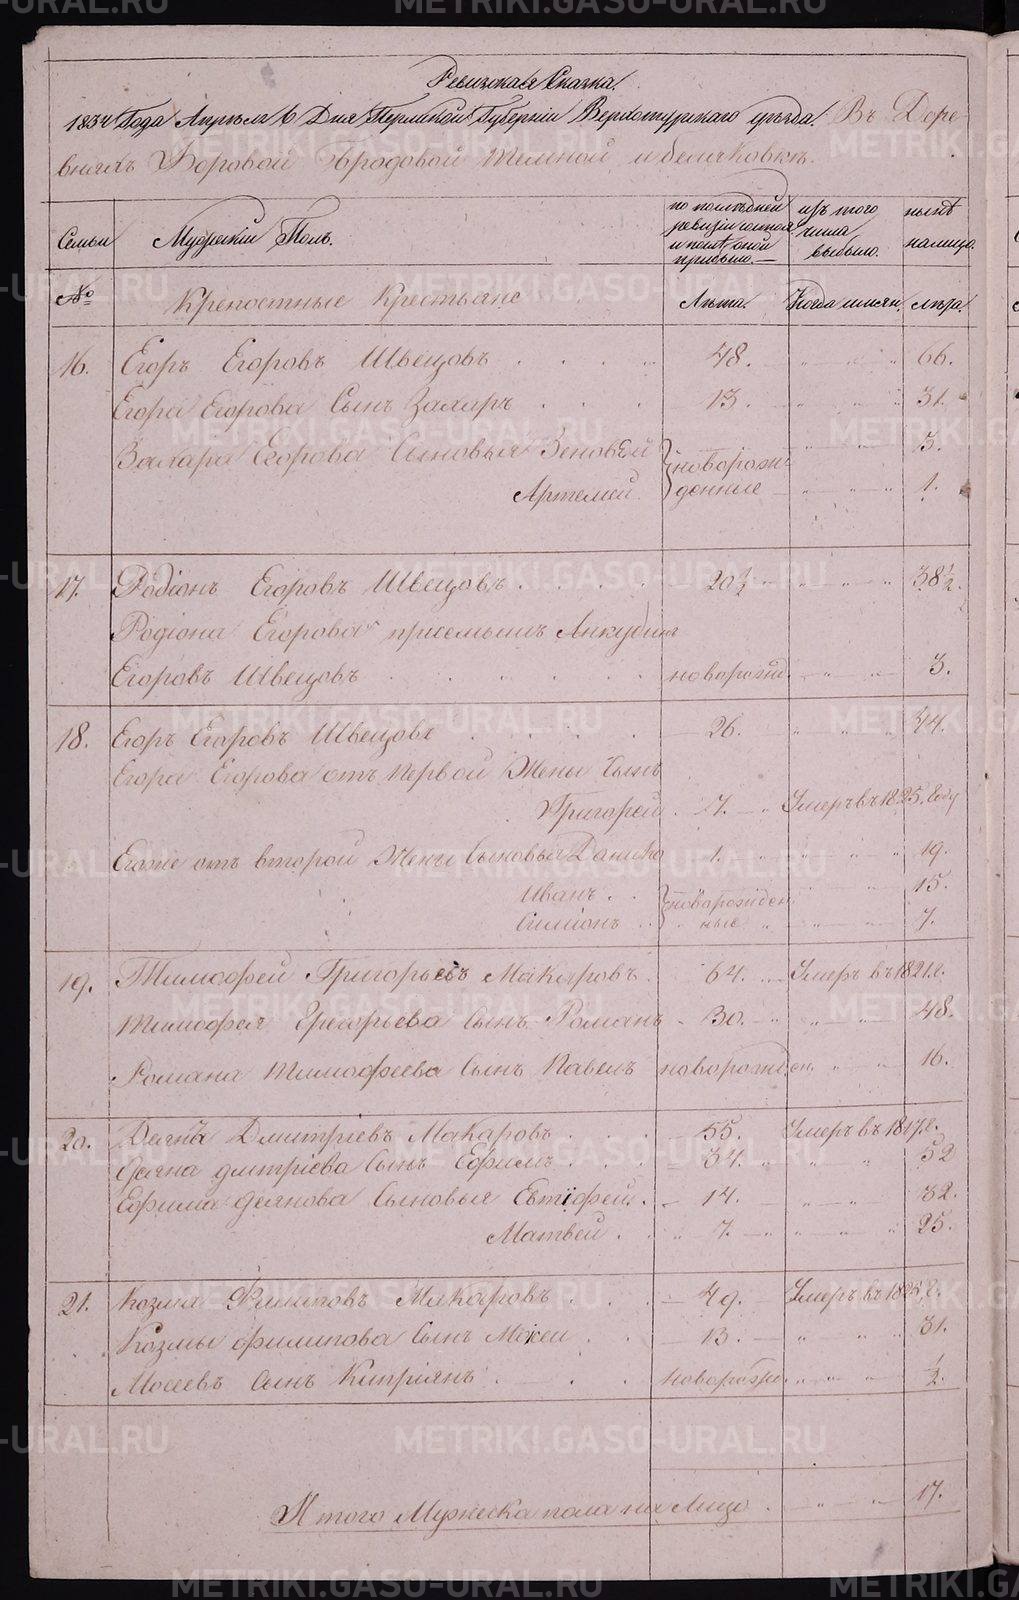 Ревизская Сказка.
1834 Года Апреля 6 Дня Пермской Губернии Верхотурскаго уезда. Въ Дере-
вняхъ Боровой Бродовой Темной и беляковке.
Семьи Мужеский Полъ. по последней ревизии состояло и после оной прибыло. изъ того числа выбыло. ныне налицо.
№ Крепостные Крестьяне Лѣта. Когда имян. лѣта.
16. Егоръ Егоровъ Швецовъ 48. 66.
Егора Егорова Сынъ Захаръ 13. 31.
Захара Егорова Сыновья Зеновей новорож- 3.
Артемей денные 1.
17. Родіонъ Егоровъ Швецовъ 20½ 38½.
Родіона Егорова приемышъ Анкудинъ
Егоровъ Швецовъ новорожд. 3.
18. Егоръ Егоровъ Швецовъ 26. 44.
Егора Егорова отъ первой Жены Сынъ
Григорей 7. Умеръ въ 1825. Году
Егоже отъ второй Жены Сыновья Данило 1. 19.
Иванъ новорожден 15.
Симионъ ные 7.
19. Тимофей Григорьевъ Макаровъ 64. Умеръ въ 1821 г.
Тимофея Григорьева Сынъ Романъ 30. 48.
Романа Тимофеева Сынъ Павелъ новорожден. 16.
20. Деянъ Дмитріевъ Макаровъ 55. Умеръ въ 1817 г.
Деяна дмитріева Сынъ Ефимъ 34. 52
Ефима деянова Сыновья Евтифей 14. 32.
Матвей 7. 25.
21. Козма Филиповъ Макаровъ 49. Умеръ въ г.
Козмы филипова Сынъ Мосей 13. 31.
Мосеевъ Сынъ Кипріянъ новорожд. ½.
Итого Мужеска пола на Лицо 17.
METRIKI.GASO-URAL.RU